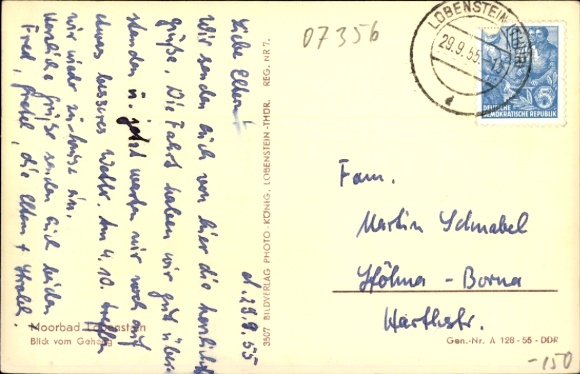 d. 28.9.55
Liebe Eltern!
Wir senden euch von hier die herzlichsten
Grüße. Die Fahrt haben wir gut über-
standen u. jetzt warten wir noch auf
etwas besseres Wetter. Am 4.10. treffen
wir wieder zu Hause ein.
Herzliche Grüße senden Euch beiden
Fred, die Eltern +
Moorbad Lobenstein
Blick vom Gehäng
3507 BILDVERLAG PHOTO-KÖNIG, LOBENSTEIN-THÜR. REG. NR 7.
07356
LOBENSTEIN (THÜR)
29.9.55
DEUTSCHE
DEMOKRATISCHE REPUBLIK
5
Fam.
Martin Schnabel
Borna
Gen.-Nr. A 128-55-DDR
-150